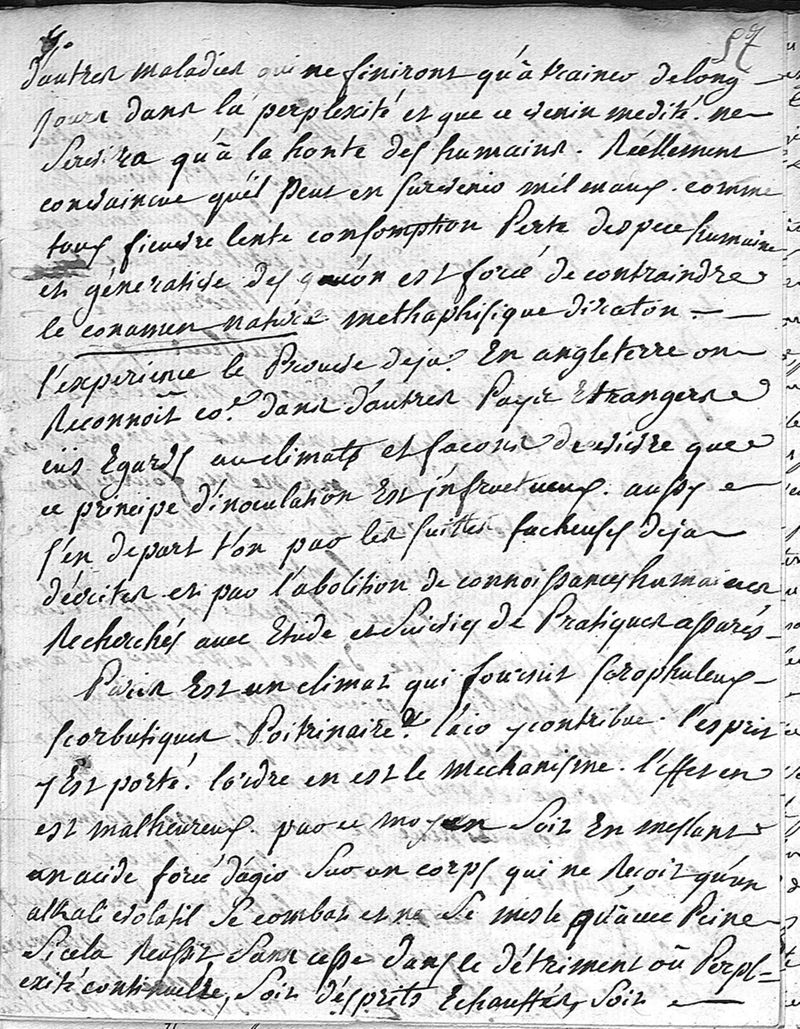 57
d'autres maladies qui ne finiront qu'à trainer de long
jours dans la perplexité et que ce venin medité ne
servira qu'à la honte des humains. Réellement
convaincue qu'il peut en survenir mil maux. comme
toux fievre lente consomption Perte despece humaine
et générative des est forcé de contraindre
le conamen naturæ methaphisique diraton
l'experience le Prouve deja. En angleterre on
Reconnoît co.e dans d'autres Pays Etrangers
Egards au climats et facons de vivre que
ce principe d'inoculation Est infructueux. aussy
s'en depart t'on par les suittes facheuses deja
décrites et par l'abolition de connoissances humaines
Recherchés avec Etude et suivies de Pratiques assurés
Paris Est un climat qui fournit scrophuleux
scorbutiques Poitrinaires l'air y contribue. l'esprit
y Est porté. l'ordre en est le mechanisme. l'effet en
est malheureux. par ce moyen soit En meslant
un acide forcé d'agir sur un corps qui ne Recoit qu'un
alkali volatil se combat et ne se mesle qu'avec Peine
si cela Reussit sans cesse dans le détriment où Perpl-
exité continuelle, soit d'esprits Echauffés, soit